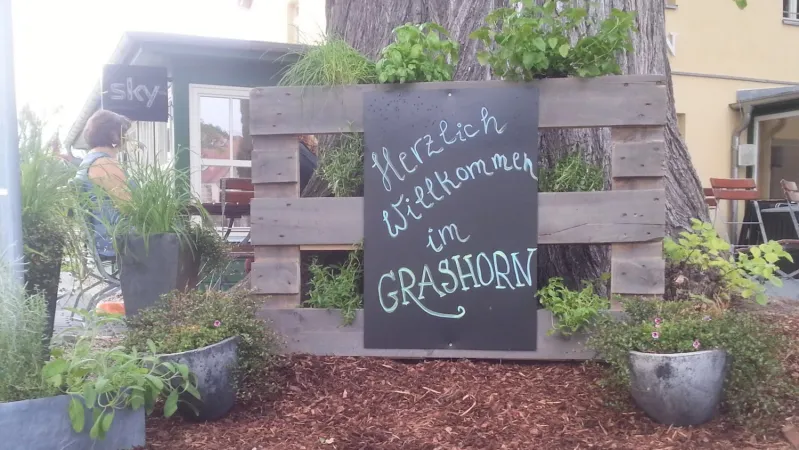 sky
Herzlich
Willkommen
im
GRASHORN